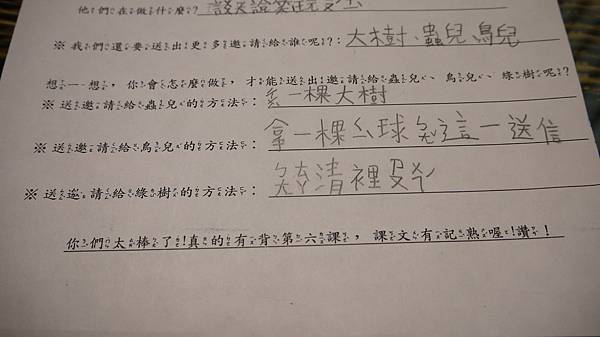 他們在做什麼？談天說笑
※ 我們還要送出更多邀請給誰呢？：大樹、蟲兒、鳥兒
想一想，你會怎麼做，才能送出邀請給蟲兒、鳥兒、綠樹呢？
※ 送邀請給蟲兒的方法：丟一棵大樹
※ 送邀請給鳥兒的方法：拿一棵ㄙ球 這一送信
※ 送邀請給綠樹的方法：清裡
你們太棒了！真的有背第六課，課文有記熟喔！讚！